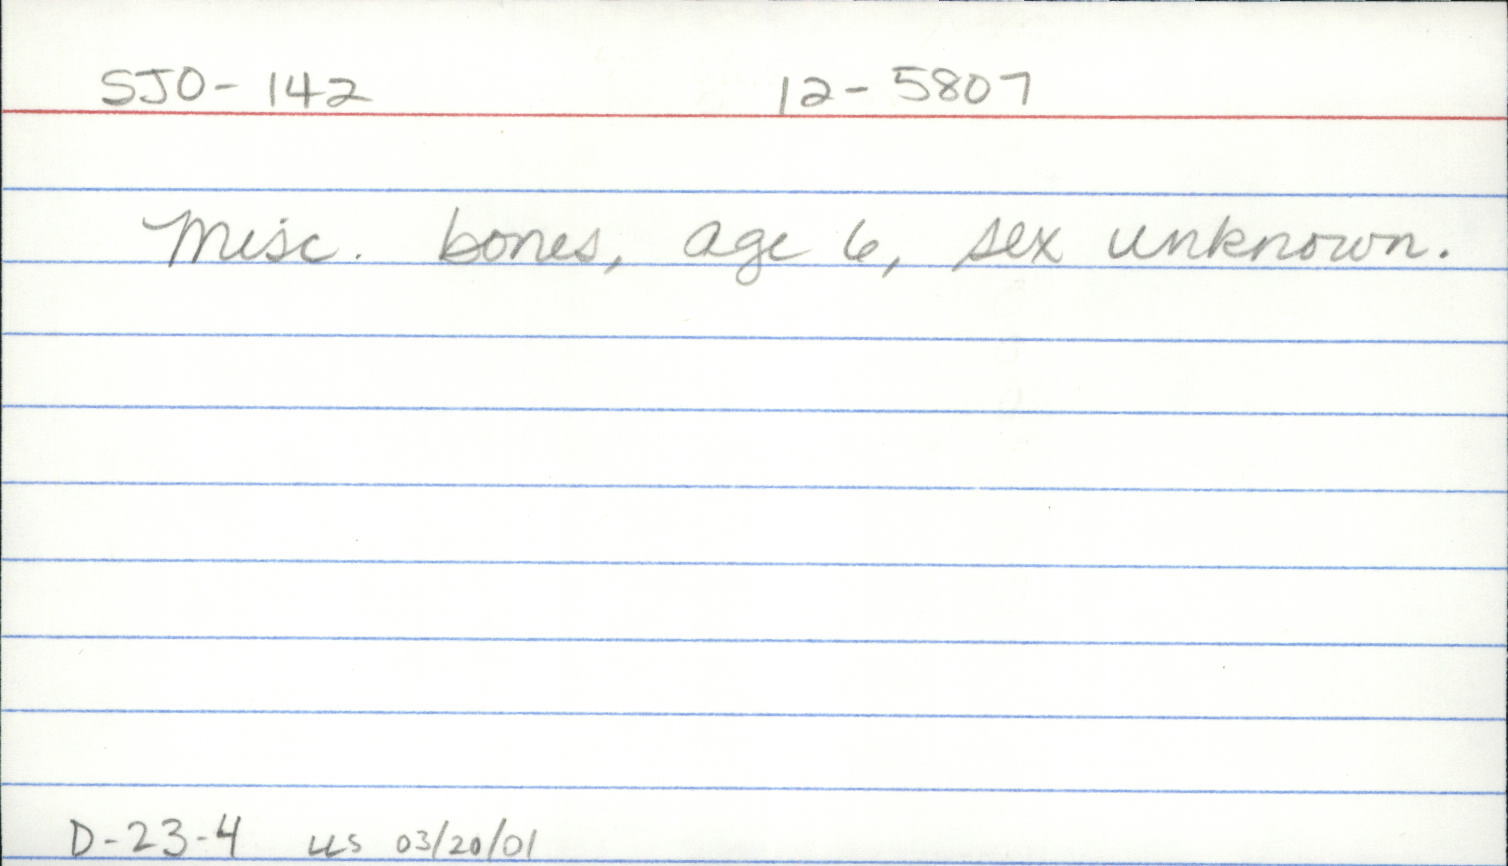 SJO-142 12-5807
Misc. bones, age 6, sex unknown.
D-23-4 us 03/20/01